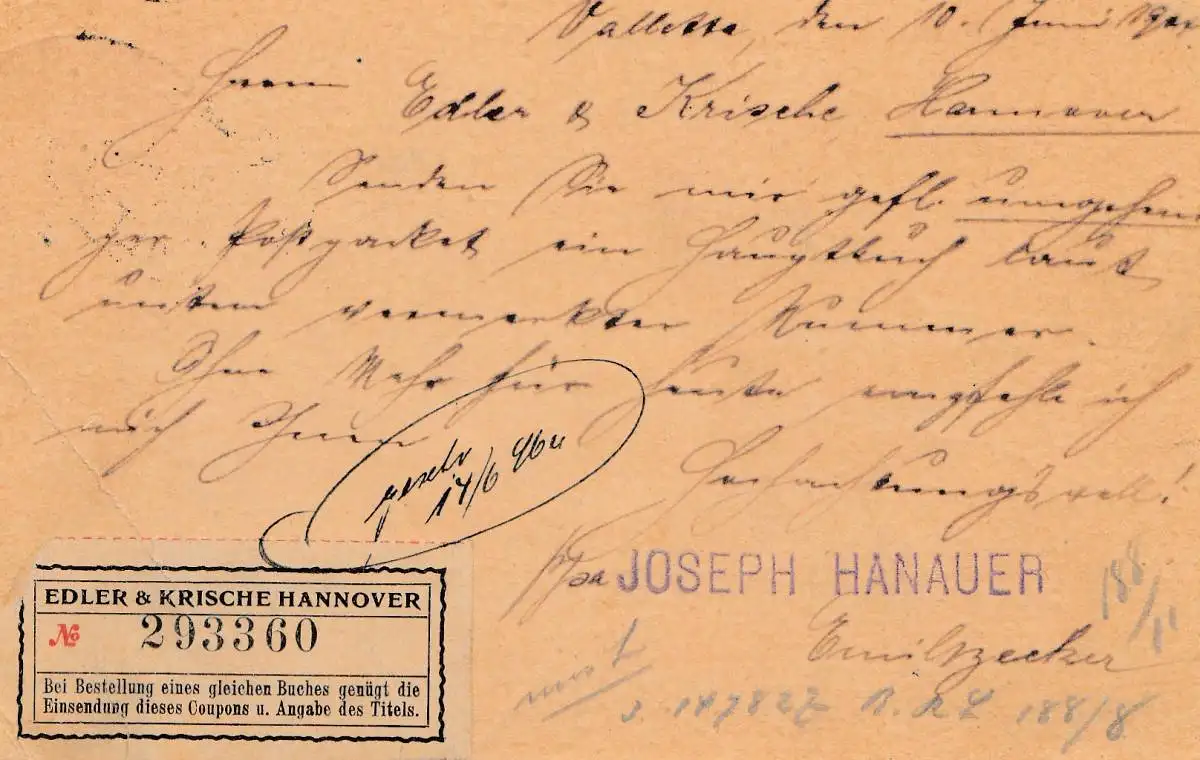 Valletta, den 10. Juni
Herrn
Edler & Krische, Hannover
Senden Sie mir gefl. umgehend
per Postpacket ein Hauptbuch laut
unten vermerkter Nummer.
Ohne Mehr für heute empfehle ich
mich Ihnen
Hochachtungsvoll!
14/6
ppa JOSEPH HANAUER
EDLER & KRISCHE HANNOVER
No 293360
Bei Bestellung eines gleichen Buches genügt die
Einsendung dieses Coupons u. Angabe des Titels.
188/11
147827 188/8